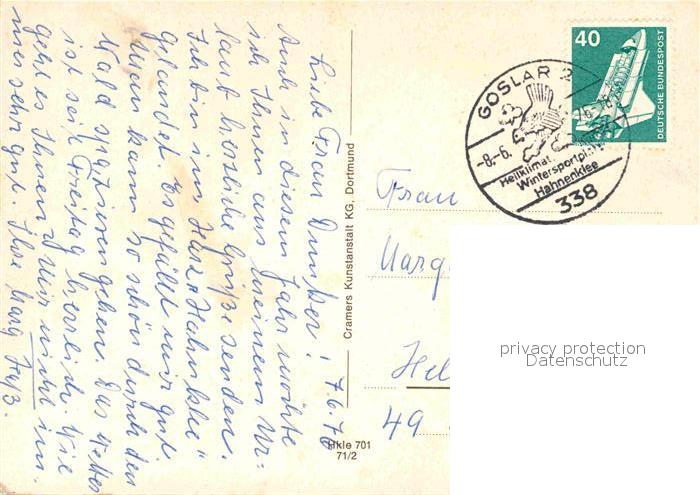 7.6.76
Liebe Frau Dunker!
Auch in diesem Jahr möchte
ich Ihnen aus meinem Ur-
laub herzliche Grüße senden.
Ich bin im Harz "Hahnklee"
gelandet. Es gefällt mir gut
Man kann so schön durch den
Wald spazieren gehen. Das Wetter
ist seit Freitag herrlich. Wie
geht es Ihnen? Mir nicht im-
mer sehr gut. Ihre Marg.
Cramers Kunstanstalt KG, Dortmund
Hkle 701
71/2
40
DEUTSCHE BUNDESPOST
GOSLAR 2
-8.-6.
Heilklimat.
Wintersportplatz
Hahnenklee
338
Frau
Marg
Hel
49
privacy protection
Datenschutz